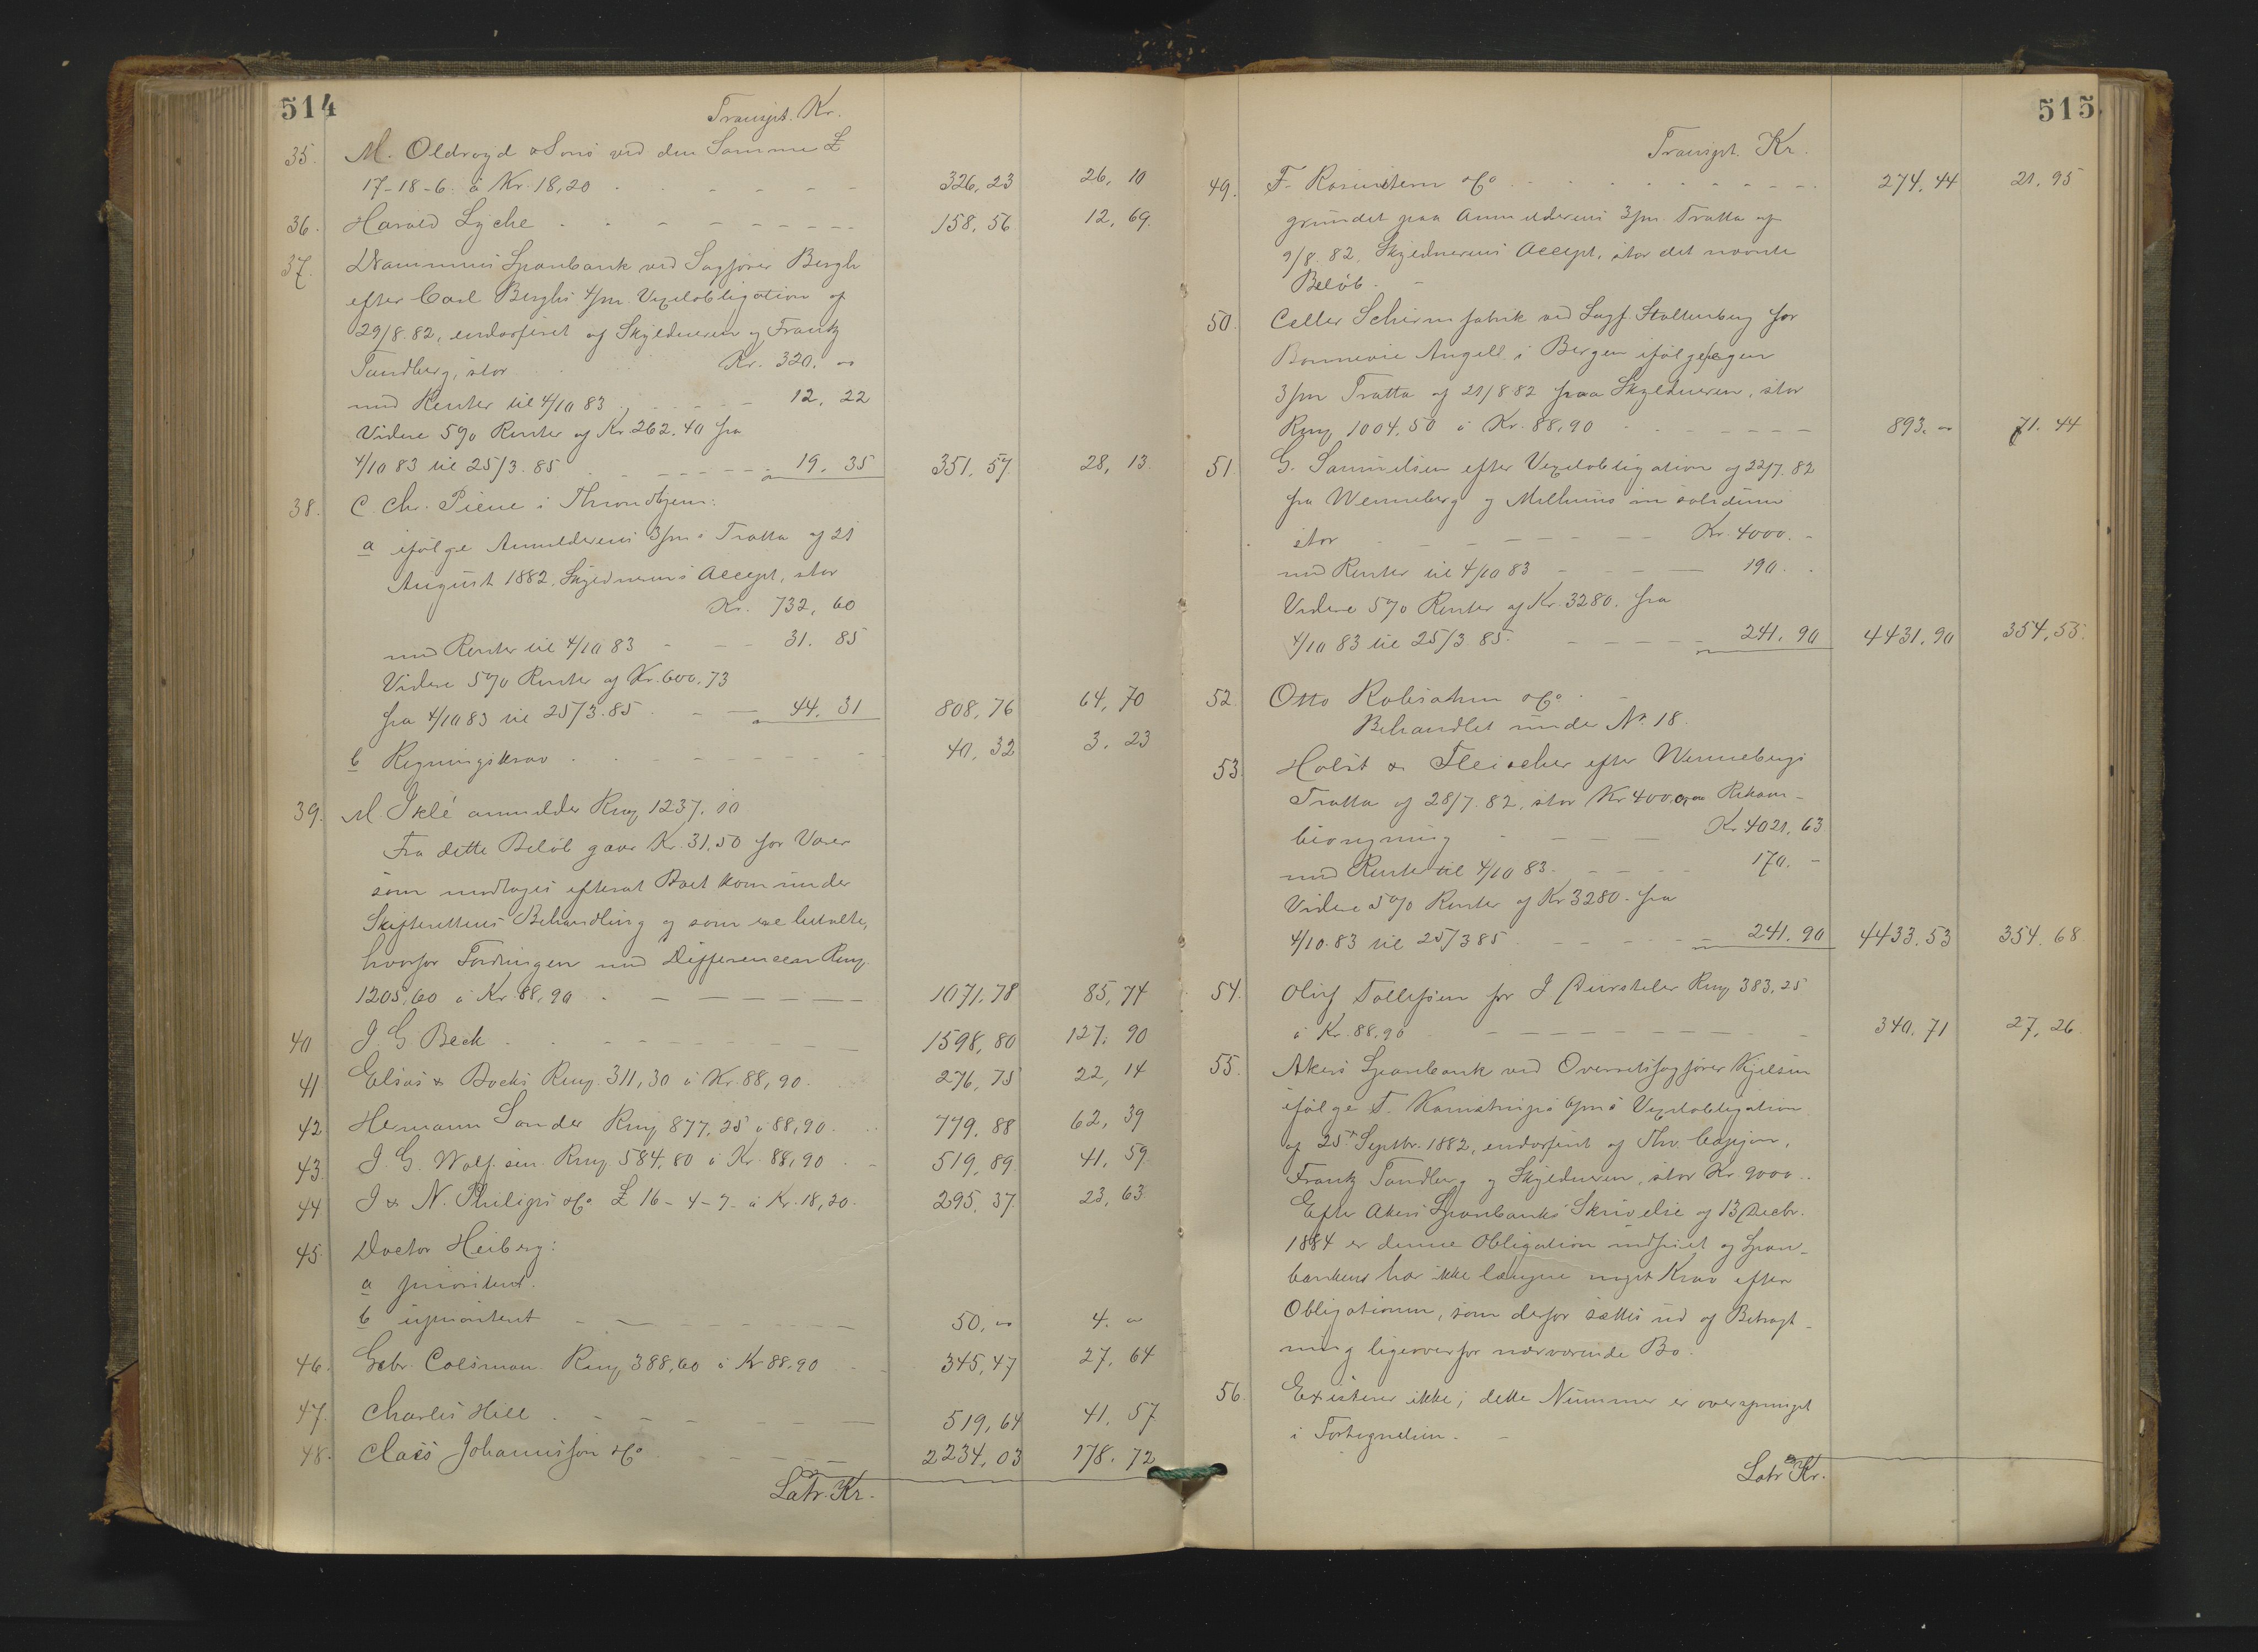 514
Transpt. Kr.
35. M. Oldroyd & Sons ved den Samme £
17-18-6. à Kr. 18,20 326,23 26,10
36. Harald Lyche 158,56 12,69.
37. Drammens Sparebank ved Sagfører Bergh
efter Carl Berghs 4/m Vexelobligation af
29/8.82, endosseret af Skyldneren og Frantz
Tandberg, stor Kr. 320. "
med Renter til 4/10 83 12,22
Videre 5% Renter af Kr. 262.40 fra
4/10 83 til 25/3.85 19.35 351,57. 28,13.
38. C. Chr. Piene i Throndhjem:
a ifølge Anmelderens 3/m's Tratta af 21
August 1882, Skyldnerens Accept, stor
Kr. 732,60
med Renter til 4/10 83 31.85
Videre 5% Renter af Kr. 600.73
fra 4/10 83 til 25/3.85 44.31 808,76 64,70
b Regningskrav 40,32 3.23
39. M. Iklé anmelder Rmp 1237.10
Fra dette Beløb gaar Kr. 31.50 for Varer
som modtoges efterat Boet kom under
Skifterettens Behandling og som ere betalte,
hvorfor Fordringen med Differencen Rmp.
1205,60 à Kr. 88,90 1071,78 85,74
40 J. G. Beck 1598,80 127.90
41 Elsas & Bocks Rmp. 311,30 à Kr. 88,90. 276,75 22,14
42 Hermann Sander Rmp 877,25 à 88,90. 779.88 62,39
43. J. G. Wolf sen. Rmp 584,80 à Kr. 88,90 519,89. 41,59
44 J & N. Philips & Co £ 16-4-7- à Kr. 18,20. 295,37. 23,63
45. Doctor Heiberg:
a prioritert.
b uprioritert 50,00 4.00
46. Gebr. Colsman. Rmp 388,60 à Kr 88,90 345,47 27,64
47. Charles Hill 519,64 41,57
48. Claes Johannisson & Co 2234,03 178.72
Latr. Kr.
515.
Transpt. Kr.
49. F. Rosenstern & Co 274,44 21.95
grundet paa Anmelderens 3/m Tratta af
9/8.82, Skyldnerens Accept, stor det nævnte
Beløb.
50. Celler Schirmfabrik ved Sagf. Stoltenberg for
Bonnevie Angell i Bergen ifølge egen
3/m Tratta af 21/8 82 paa Skyldneren, stor
Rmp 1004,50 à Kr. 88,90 893.00 71.44
51. G. Samuelsen efter Vexelobligation af 22/7.82
fra Wenneberg og Melhuus in solidum
stor Kr. 4000.-
med Renter til 4/10 83 190.-
Videre 5% Renter af Kr. 3280. fra
4/10 83 til 25/3 85. 241.90 4431.90 354,55.
52. Otto Robsahm & Co
Behandlet under No. 18.
53. Holst & Fleischer efter Wennebergs
Tratta af 28/7.82, stor Kr 4000,00 Rekam-
bioregning Kr 4021.63
med Renter til 4/10 83. 170.-
Videre 5% Renter af Kr 3280. fra
4/10.83 til 25/3 85 241.90 4433.53 354.68
54. Oluf Tollefsen for J Dürsteler Rmp 383.25
à Kr. 88,90 340.71 27,26
55. Akers Sparebank ved Overretssagfører Kjelsen
ifølge T. Kamstrups 6/m's Vexelobligation
af 25de Septbr. 1882, endosseret af Thv. Cappjon,
Frantz Tandberg og Skyldneren, stor Kr. 9000..
Efter Akers Sparebanks Skrivelse af 13 Decbr.
1884 er denne Obligation indfriet og Spare-
banken har ikke længere noget Krav efter
Obligationen, som derfor sættes ud af Betragt-
ning ligeoverfor nærværende Bo.
56. Existerer ikke; dette Nummer er oversprunget
i Fortegnelsen.
Latr. Kr.